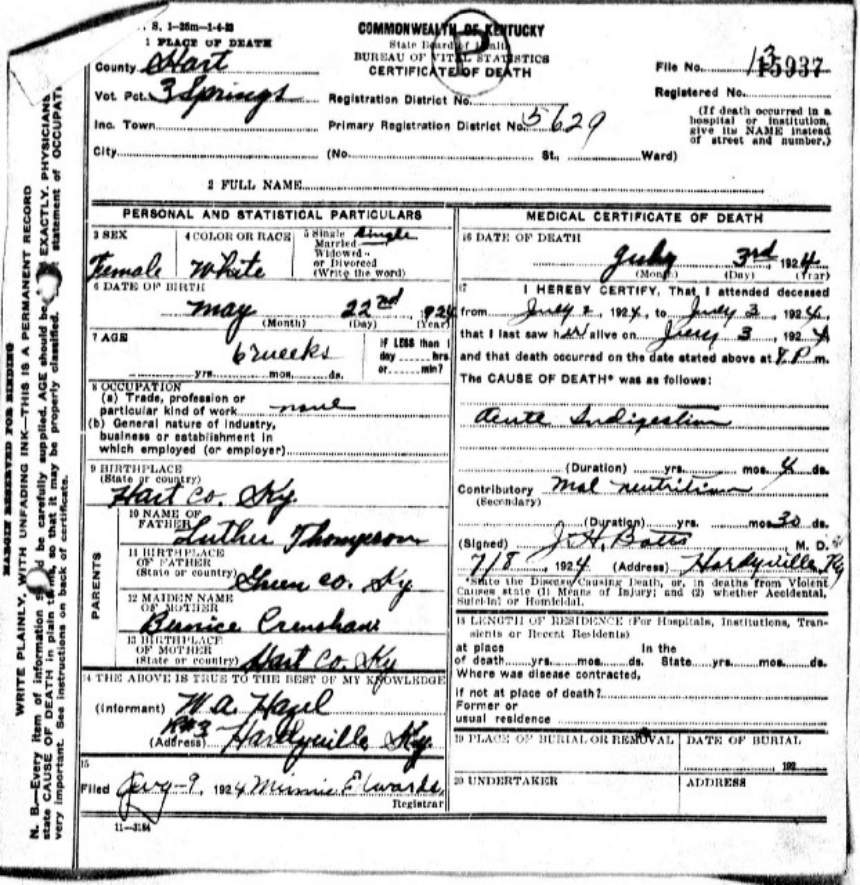 S. 1-25m-1-4-23
1 PLACE OF DEATH
County Hart
Vot. Pct. 3 Springs
Inc. Town
City
COMMONWEALTH OF KENTUCKY
State Board of Health
BUREAU OF VITAL STATISTICS
CERTIFICATE OF DEATH
Registration District No.
Primary Registration District No. 5629
(No. St., Ward)
File No. 15937
Registered No.
(If death occurred in a
hospital or institution,
give its NAME instead
of street and number.)
2 FULL NAME
PERSONAL AND STATISTICAL PARTICULARS
3 SEX
Female
4 COLOR OR RACE
White
5 Single Single
Married
Widowed
or Divorced
(Write the word)
6 DATE OF BIRTH
May 22nd, 1924
(Month) (Day) (Year)
7 AGE
6 weeks
yrs. mos. ds.
IF LESS than 1
day hrs.
or min?
8 OCCUPATION
(a) Trade, profession or
particular kind of work none
(b) General nature of industry,
business or establishment in
which employed (or employer)
9 BIRTHPLACE
(State or country)
Hart Co. Ky.
PARENTS
10 NAME OF
FATHER Luther Thompson
11 BIRTHPLACE
OF FATHER
(State or country) Green Co. Ky
12 MAIDEN NAME
OF MOTHER
Bernice Crenshaw
13 BIRTHPLACE
OF MOTHER
(State or country) Hart Co. Ky
14 THE ABOVE IS TRUE TO THE BEST OF MY KNOWLEDGE
(Informant) W. A. Hazel
R#3
(Address) Hardyville, Ky.
15
Filed Aug-9, 1924 Minnie Edwards,
Registrar
11-3184
MEDICAL CERTIFICATE OF DEATH
16 DATE OF DEATH
July 3rd, 1924
(Month) (Day) (Year)
17 I HEREBY CERTIFY, That I attended deceased
from July 2, 1924, to July 3, 1924,
that I last saw her alive on July 3, 1924
and that death occurred on the date stated above at 8 P.m.
The CAUSE OF DEATH* was as follows:
Acute Indigestion
(Duration) yrs. mos. 4 ds.
Contributory Mal nutrition
(Secondary)
(Duration) yrs. mos. 30 ds.
(Signed) J. H. Botts M. D.
7/8, 1924 (Address) Hardyville, Ky
*State the Disease Causing Death, or, in deaths from Violent
Causes state (1) Means of Injury; and (2) whether Accidental,
Suicidal or Homicidal.
18 LENGTH OF RESIDENCE (For Hospitals, Institutions, Transients
or Recent Residents)
at place In the
of death yrs. mos. ds. State yrs. mos. ds.
Where was disease contracted,
if not at place of death?
Former or
usual residence
19 PLACE OF BURIAL OR REMOVAL
DATE OF BURIAL
192
20 UNDERTAKER
ADDRESS
MARGIN RESERVED FOR BINDING
WRITE PLAINLY, WITH UNFADING INK—THIS IS A PERMANENT RECORD
N. B.—Every item of information should be carefully supplied. AGE should be EXACTLY. PHYSICIANS
state CAUSE OF DEATH in plain terms, so that it may be properly classified. statement of OCCUPATI
very important. See instructions on back of certificate.